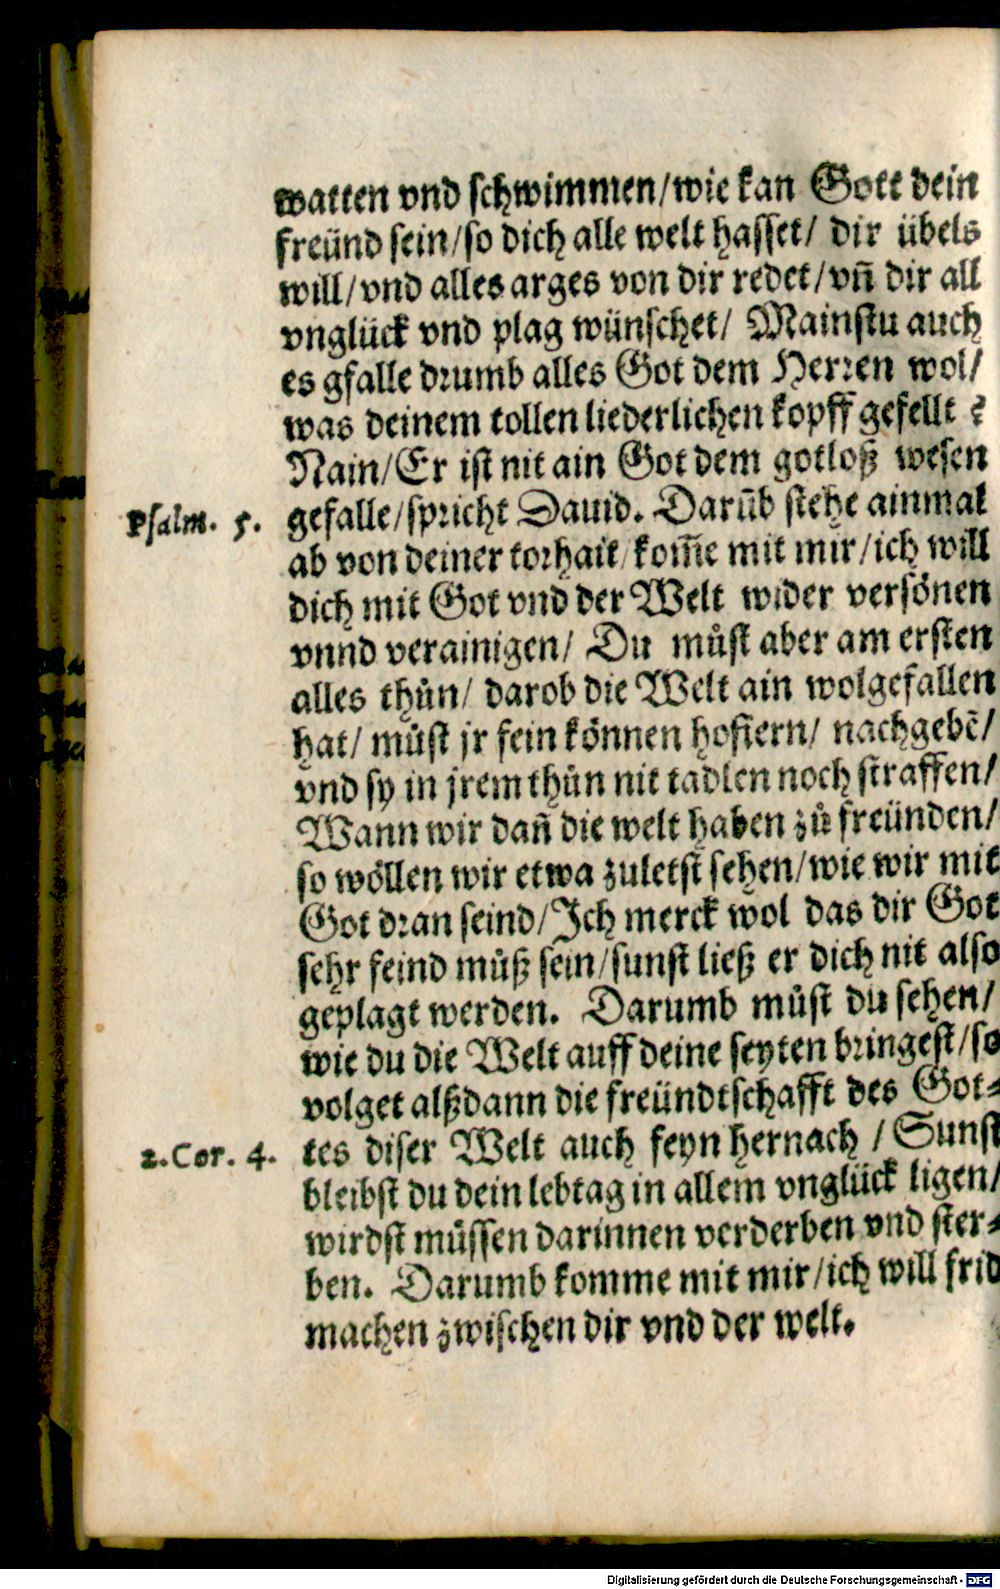 watten vnd schwimmen/wie kan Gott dein
freünd sein/so dich alle welt hasset/ dir übels
will/vnd alles arges von dir redet/vñ dir all
vnglück vnd plag wünschet/ Mainstu auch
es gfalle drumb alles Got dem Herren wol/
was deinem tollen liederlichen kopff gefellt ?
Nain/Er ist nit ain Got dem gotloß wesen
Psalm. 5. gefalle/spricht Dauid. Darũb stehe ainmal
ab von deiner torhait/kom̃e mit mir/ich will
dich mit Got vnd der Welt wider versönen
vnnd verainigen/ Du můst aber am ersten
alles thůn/ darob die Welt ain wolgefallen
hat/ můst jr fein können hofiern/ nachgebẽ/
vnd sy in jrem thůn nit tadlen noch straffen/
Wann wir dañ die welt haben zů freünden/
so wöllen wir etwa zuletst sehen/wie wir mit
Got dran seind/Ich merck wol das dir Got
sehr feind můß sein/sunst ließ er dich nit also
geplagt werden. Darumb můst du sehen/
wie du die Welt auff deine seyten bringest/so
volget alßdann die freündtschafft des Got⸗
2.Cor. 4. tes diser Welt auch feyn hernach / Sunst
bleibst du dein lebtag in allem vnglück ligen/
wirdst müssen darinnen verderben vnd ster⸗
ben. Darumb komme mit mir/ich will frid
machen zwischen dir vnd der welt.
Digitalisierung gefördert durch die Deutsche Forschungsgemeinschaft - DFG